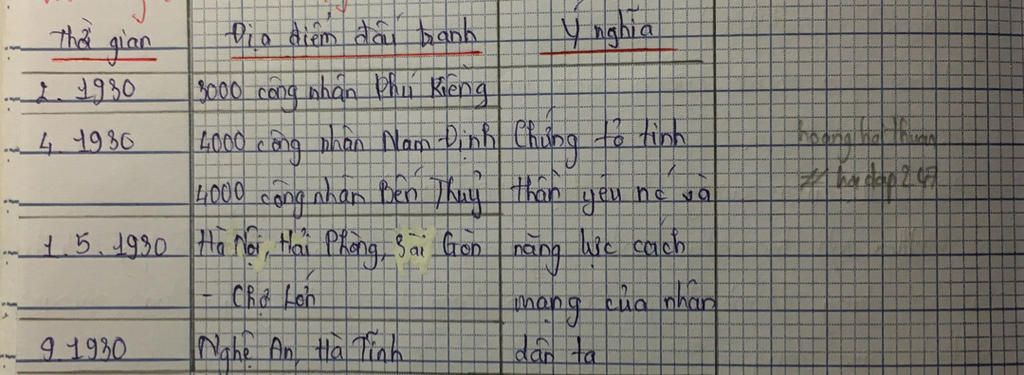 Thời gian Địa điểm đấu tranh Ý nghĩa
2. 1930 3000 công nhân Phú Riềng
4. 1930 4000 công nhân Nam Định Chứng tỏ tinh
4000 công nhân Bến Thuỷ thần yêu nc và
1. 5. 1930 Hà Nội, Hải Phòng, Sài Gòn năng lực cách
- Chợ Lớn mạng của nhân
9 1930 Nghệ An, Hà Tĩnh dân ta
hoidap247